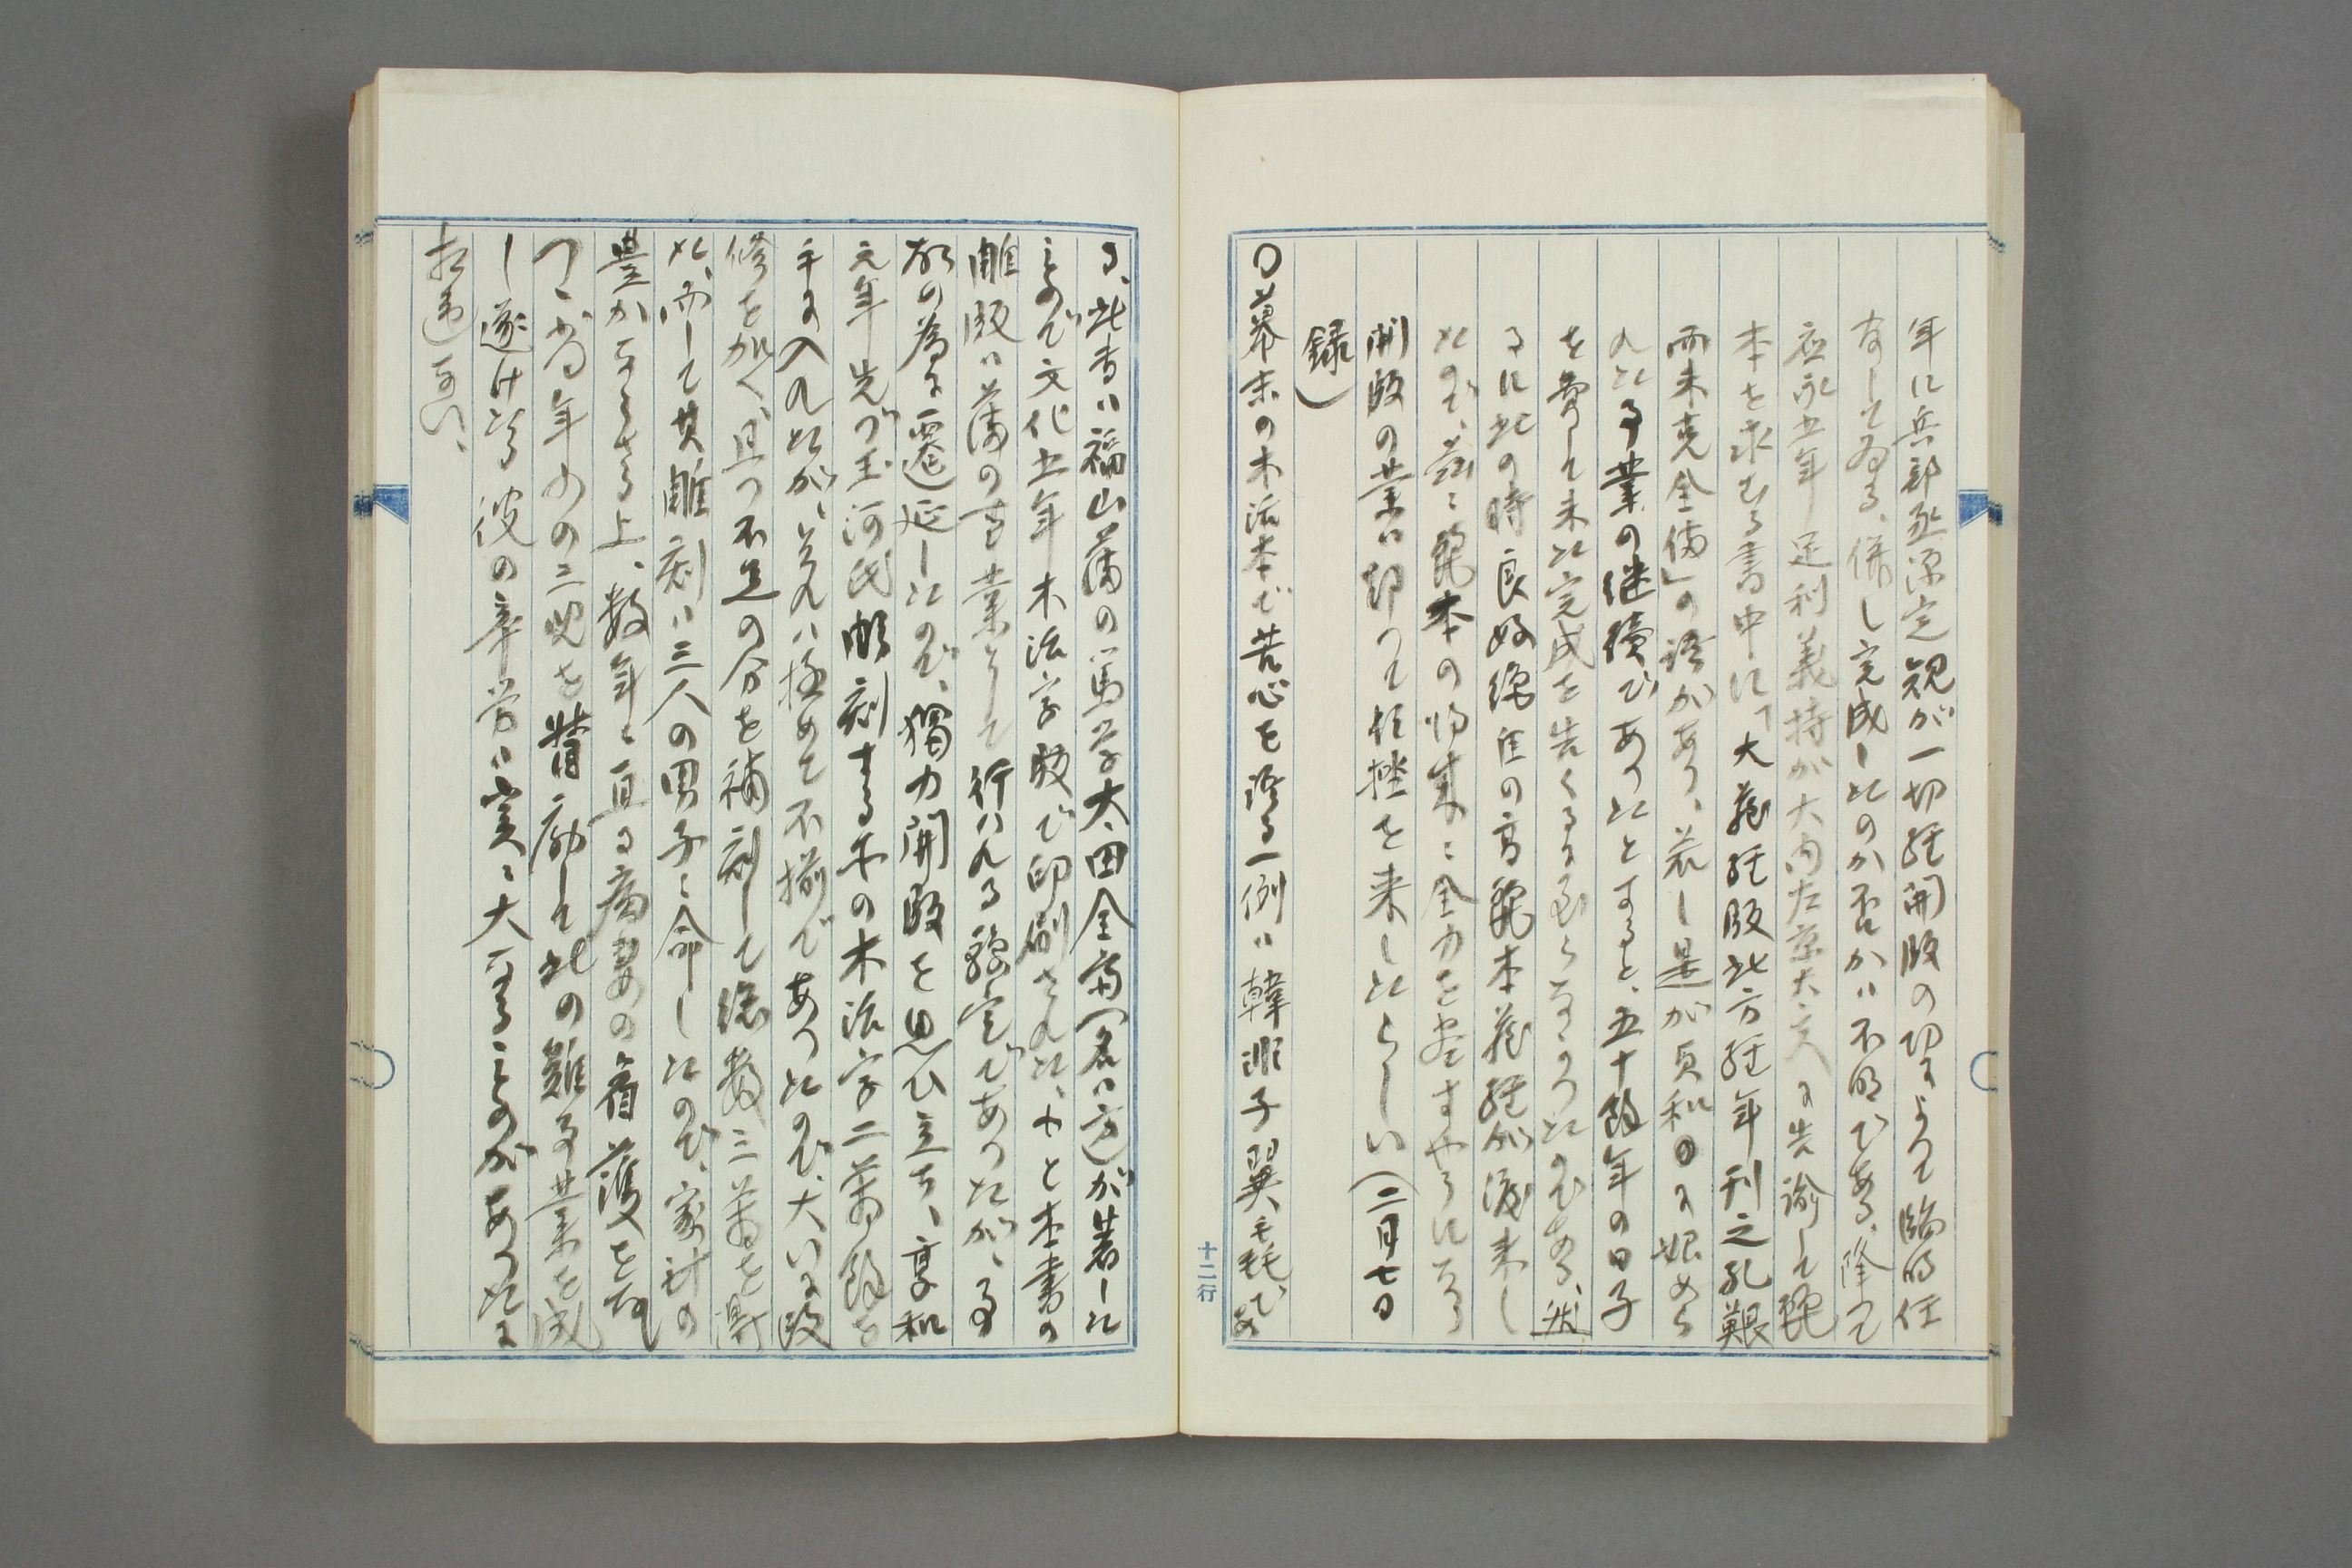 年に兵部丞源定観が一切経開版の功によつて臨時任
官してゐる、併し完成したのか否かは不明である、降つて
応永五年足利義持が大内左京大夫に告諭して麗
本を求むる書中に「大蔵経版此方経年刊之孔艱
而未克全備」の語があり、若し是が貞和のに始めら
れた事業の継続であつたとすると、五十餘年の日子
を費して未た完成を告くるに至らなかつたのである、然
るに此の時良好絶佳の高麗本蔵経が渡来し
たので、茲に麗本の将来に全力を尽すやうになる
開版の業は却つて頓挫を来したらしい(二月七日
録)
〇幕末の木活本で苦心を語る一例は韓非子翼毳であ
る、此書は福山藩の篤学太田全斎(名は方)が著した
もので文化五年木活字版で印刷された、もと本書の
雕版は藩の事業として行はれる豫定であつたが、事
故の為に遷延したので、獨力開版を思ひ立ち、享和
元年先づ玉河氏彫刻する所の木活字二萬餘を
手に入れたが、それは極めて不揃であつたので、大いに改
修を加へ、且つ不足の分を補刻して総数三萬を得
た、而して其雕刻は三人の男子に命したので、家計の
豊かならさる上、数年に亘る病妻の看護を為
つゝ、尚年少の三児を督励して此の難事業を成
し遂けたる彼の辛労は実に大なるものがあつたに
相違ない、
十二行